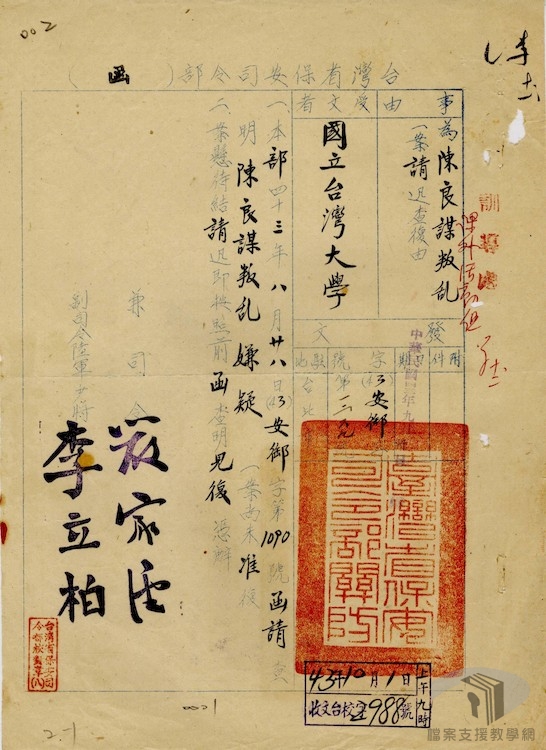 002
李
台灣省保安司令部(函)
事由
為陳良謀叛乱
一案請迅查復由
受文者
國立台灣大學
發文
附件
字號
(43)安御
字第
一、本部四十三年八月廿八日(43)安御字第1090號函請查
明陳良謀叛乱嫌疑一案尚未准復
二、案懸待結請迅即按照前函查明見復憑辦
兼司令
嚴家淦
副司令陸軍中將
李立柏
訓導處
課外活動組
臺灣省保安司令部關防
上午九時
43年10月1日
收文台校 988號
台灣省保安司
2-1
檔案支援教學網